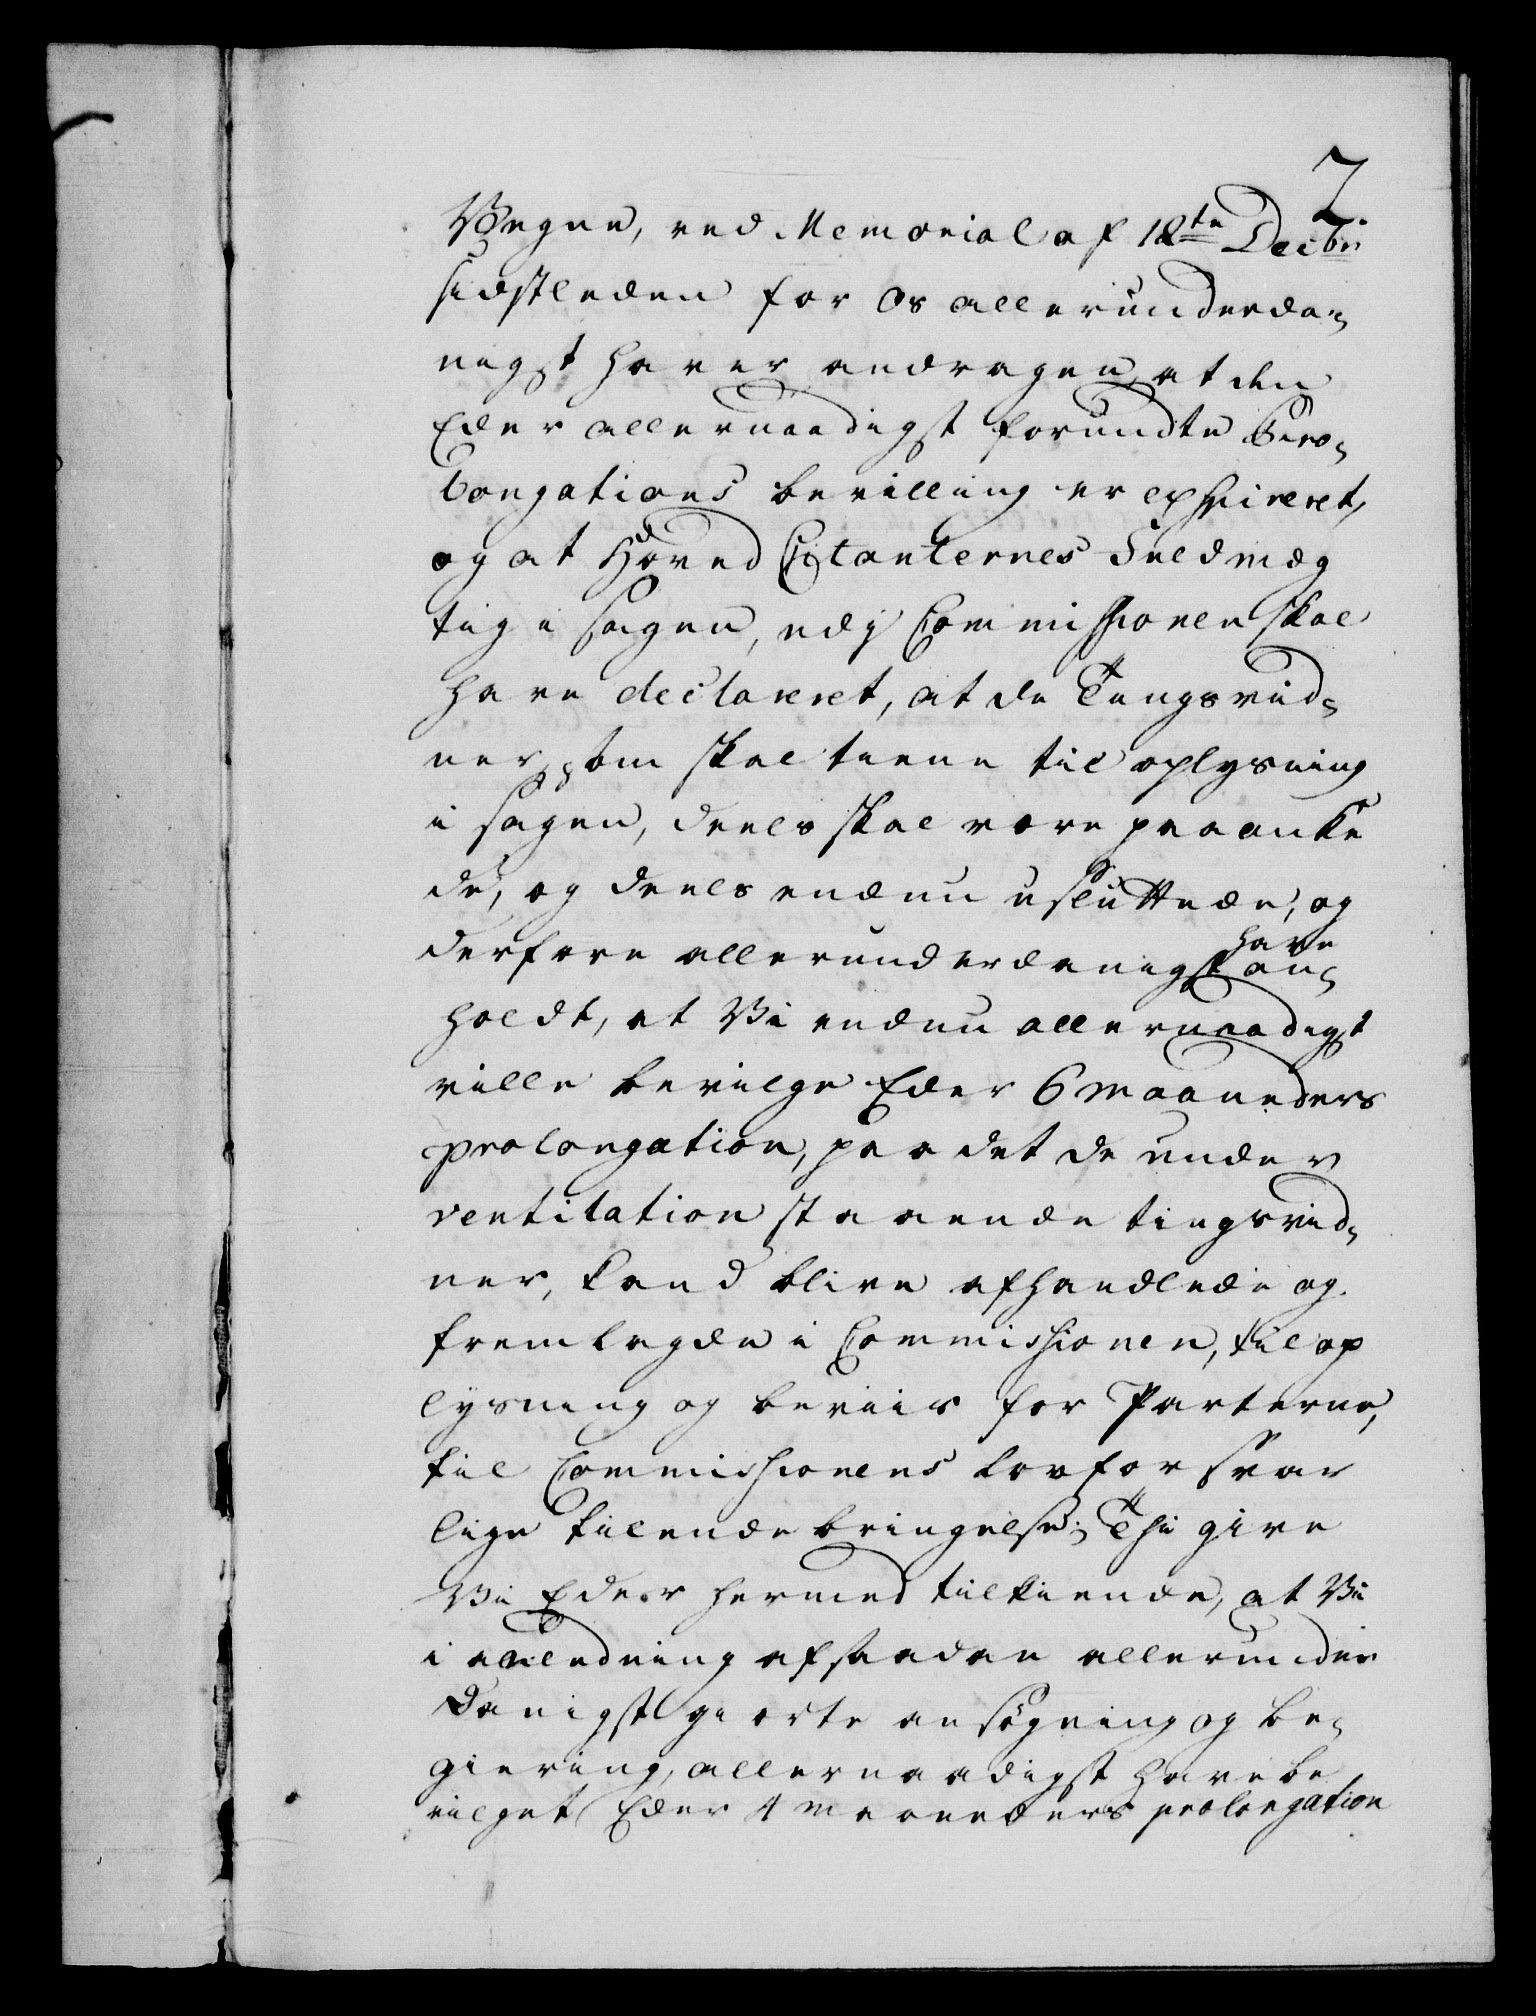 7.
Vegne, ved Memorial af 18te Decbr
sidstleden for Os allerunderda-
nigst haver andragen, at den
Eder allernaadigst forundte Pro-
longations bevilling er exspireret,
og at Hoved Citanternes Fuldmæg
tig i Sagen, udj Commissionen skal
have declareret, at de Tingsvid-
ner, som skal tiene til oplysning
i Sagen, deels skal være paaanke
de, og deels endnu usluttede, og
derfore allerunderdanigst have an-
holdt, at Vi endnu allernaadigst
ville bevilge Eder 6 maaneders
prolongation, paa det de under
ventilation staaende tingsvid-
ner, kand blive afhandlede og
fremlagde i Commissionen, til op
lysning og beviis for Parterne,
til Commissionens lovforsvar
lige tilendebringelse; Thi give
Vi Eder hermed tilkiende, at Vi
i anledning af saadan allerunder
danigst giorte ansøgning og be-
giering, allernaadigst have be
vilget Eder 4 maaneders prolongation